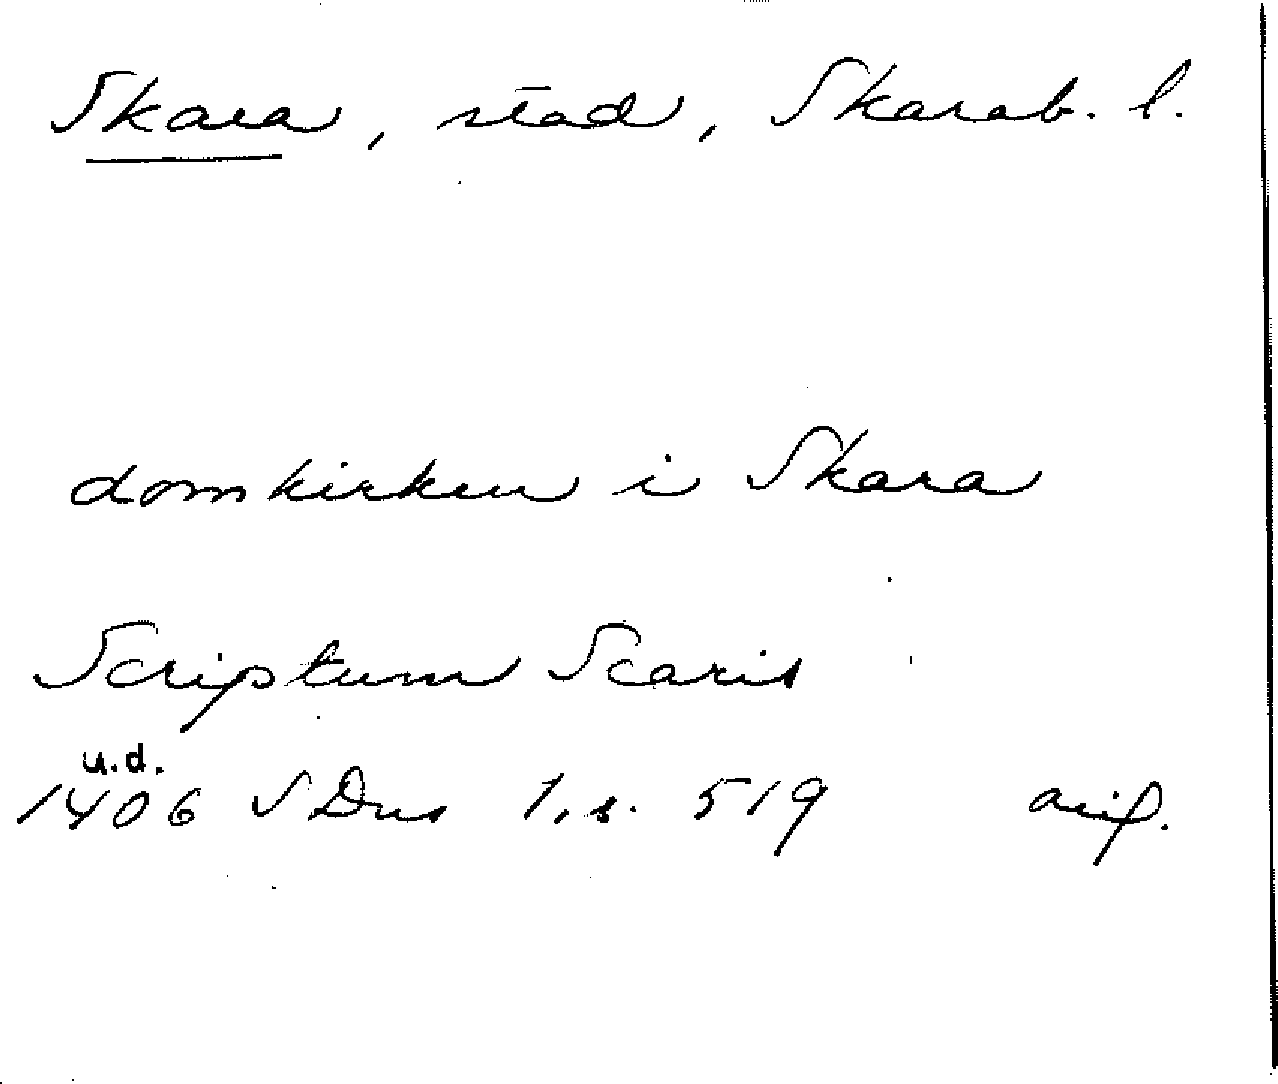 Skara, stad, Skarab. l.
domkirken i Skara
Scriptum Scaris
u.d.
1406 SDns 1, s. 519 avf.